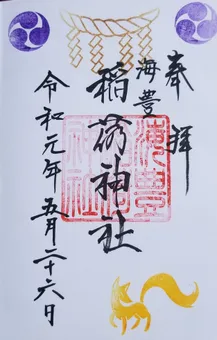 奉拝
海豊
稲荷神社
令和元年五月二十六日